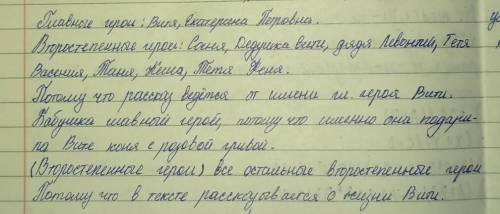 Главные герои: Витя, Екатерина Петровна.
Второстепенные герои: Саня, Дедушка Вити, дядя Левонтий, Тетя
Васения, Таня, Кеша, Тетя Феня.
Потому что рассказ ведётся от имени гл. героя Вити.
Бабушка главный герой, потому что именно она подари-
ла Вите коня с розовой гривой.
(Второстепенные герои) все остальные второстепенные герои
Потому что в тексте рассказывается о жизни Вити.